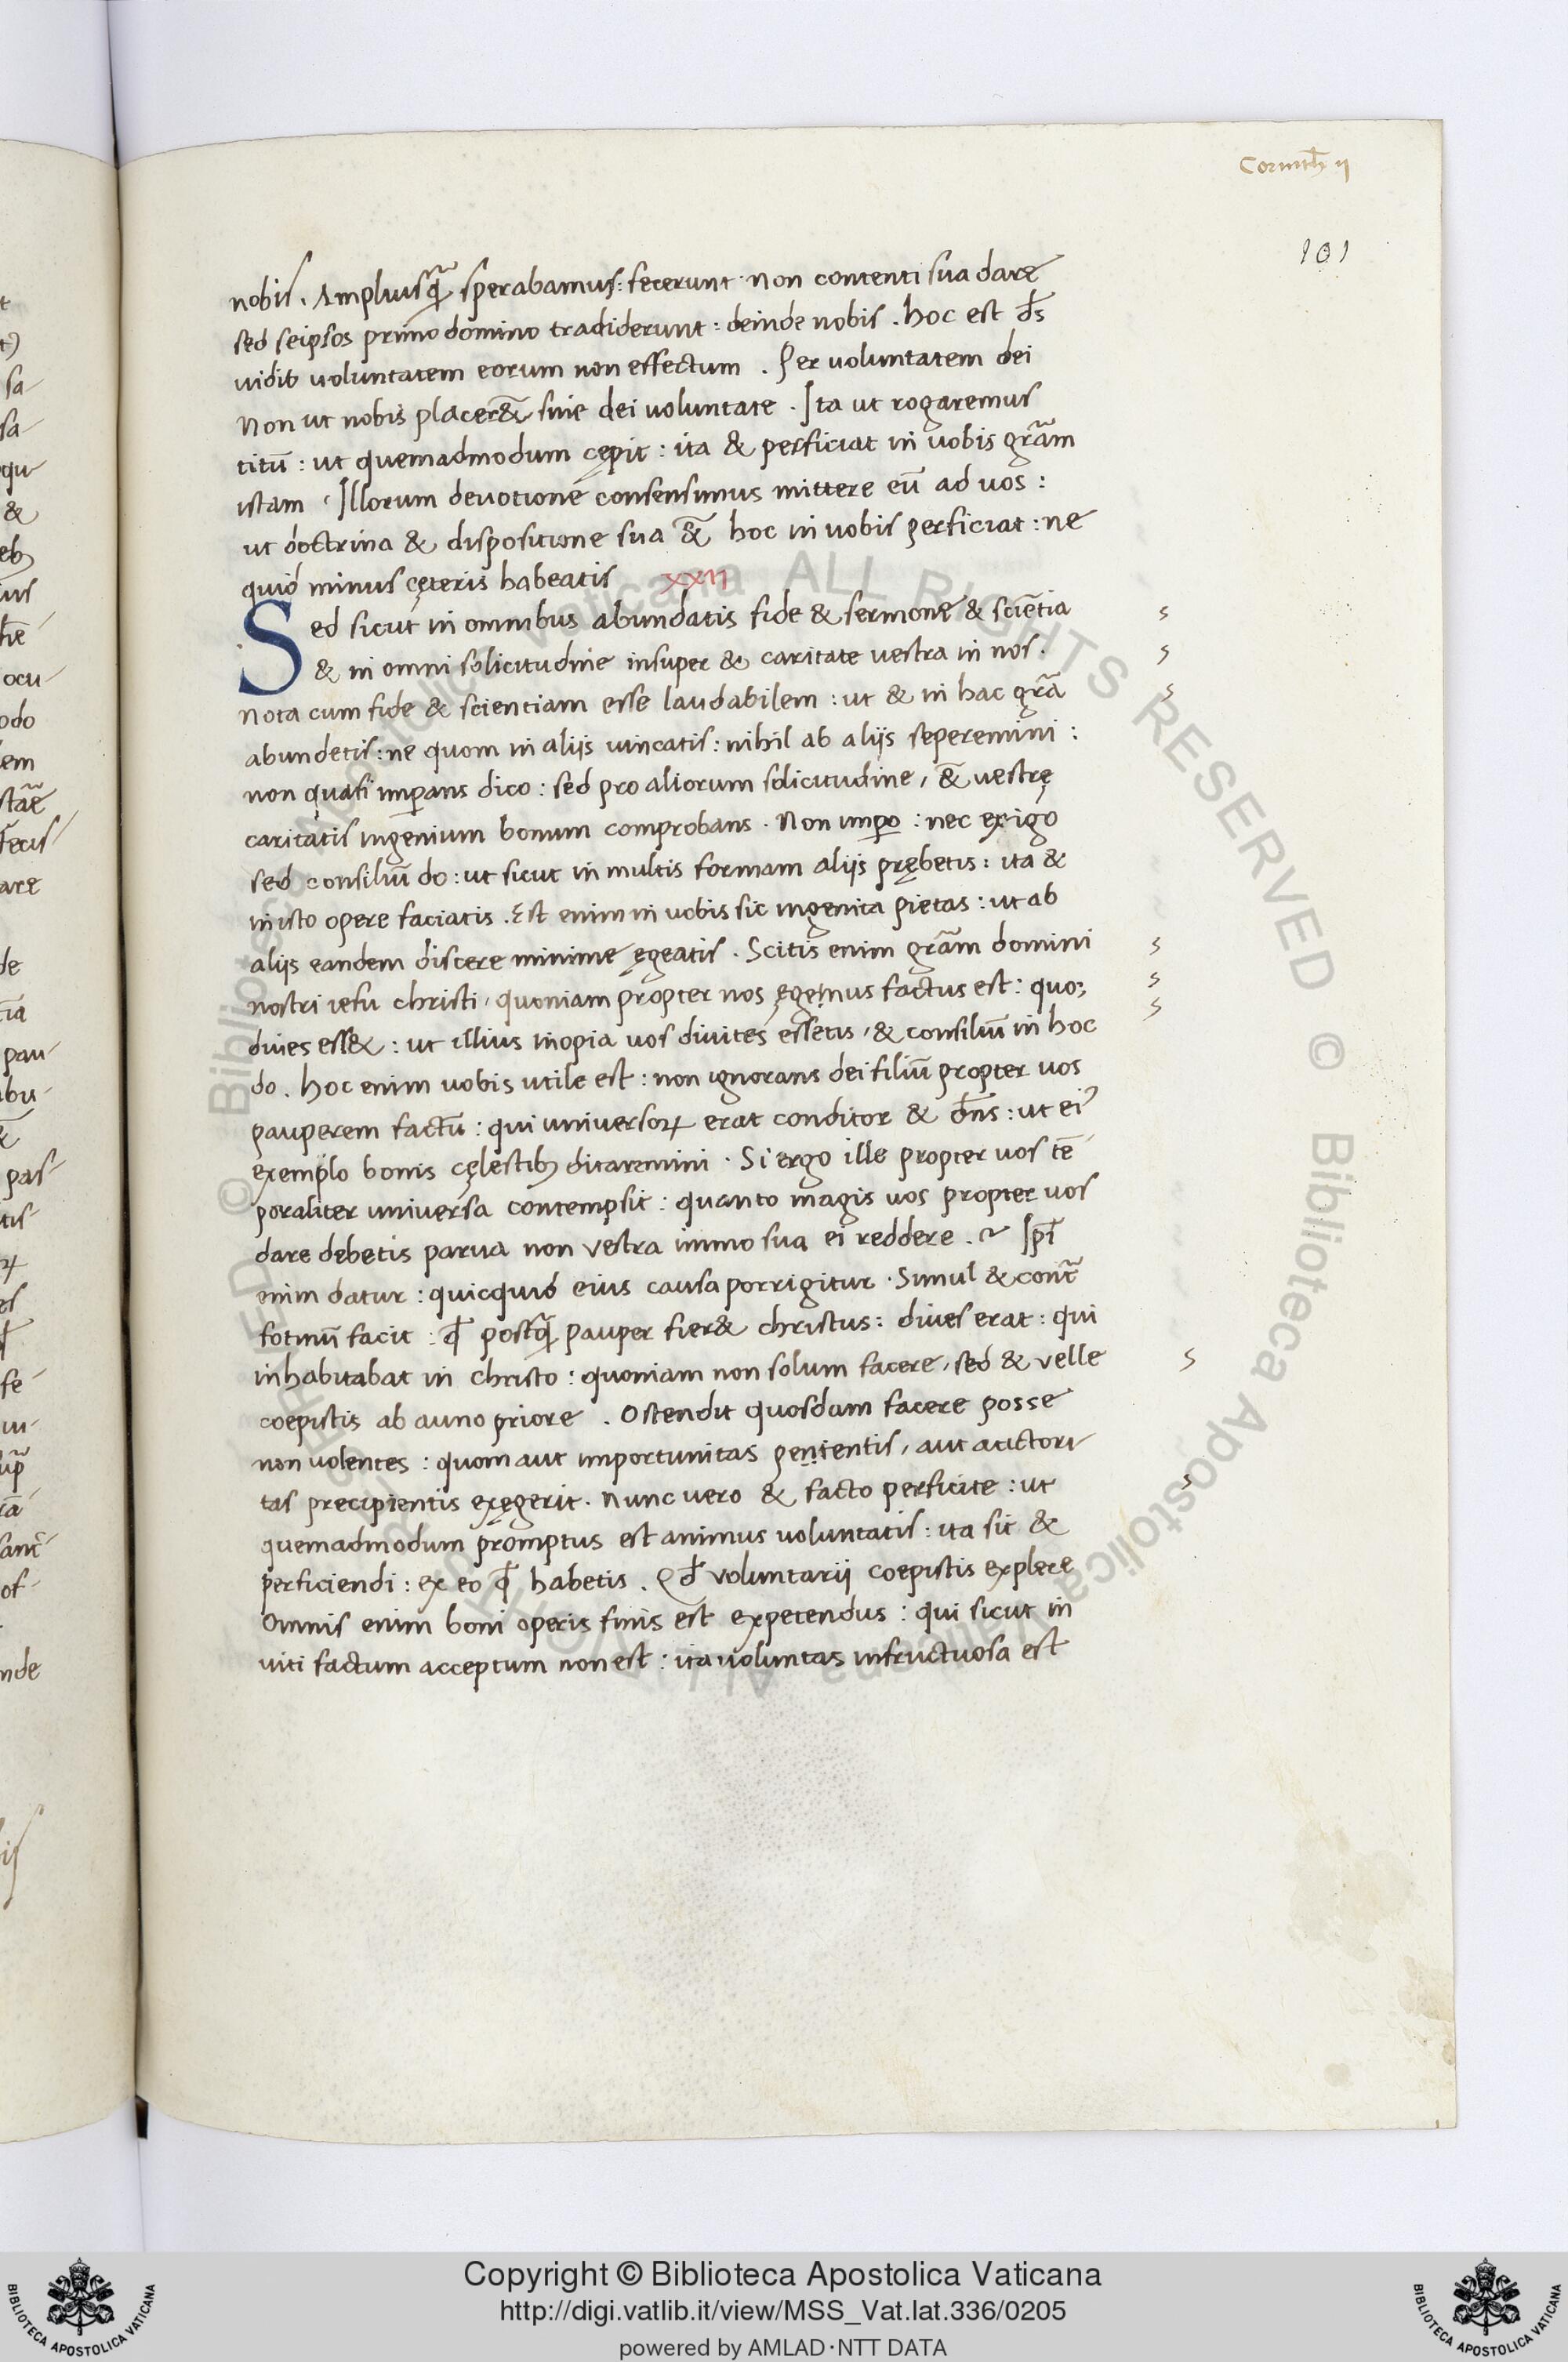 Corinth̄ II
101
nobis. Ampliusq̃ sperabamus: fecerunt non contenti sua dare
sed seipsos primo domino tradiderunt: deinde nobis. hoc est d̄s
uidit uoluntatem eorum non effectum. Per uoluntatem dei
Non ut nobis placer&̃ sine dei uoluntate. Ita ut rogaremus
titū: ut quemadmodum cępit: ita & perficiat in uobis gr̃am
istam, Illorum deuotione consensimus mittere eū ad uos:
ut doctrina & dispositione sua &̃ hoc in uobis perficiat: ne
quid minus cęteris habeatis XXII
Sed sicut in omnibus abundatis fide & sermone & sciētia
& in omni solicitudine insuper & caritate uestra in nos.
Nota cum fide & scientiam esse laudabilem: ut & in hac gr̃a
abundetis: ne quom in alijs uincatis: nihil ab alijs seperemini:
non quasi imꝑans dico: sed pro aliorum solicitudine, &̃ uestrę
caritatis ingenium bonum comprobans. Non imꝑo: nec exigo
sed consiliū do: ut sicut in multis formam alijs prębetis: ita &
in isto opere faciatis. Est enim in uobis sic ingenita pietas: ut ab
alijs eandem discere minime ęgeatis. Scitis enim gr̃am domini
nostri iesu christi, quoniam propter nos ęgenus factus est: quo;
diues ess&: ut illius inopia uos diuites essetis, & consiliū in hoc
do. hoc enim uobis utile est: non ignorans dei filiū propter uos
pauperem factū: qui uniuersoꝝ erat conditor & dn̄s: ut ei᾽
exemplo bonis cęlestib; ditaremini. Si ergo ille propter uos tē
poraliter uniuersa contempsit: quanto magis uos propter uos
dare debetis parua non vestra immo sua ei reddere. Ip̄i
enim datur: quicquid eius causa porrigitur. Simul & cont̃
fotinū facit: qđ postq̃ pauper fier& christus: diues erat: qui
inhabitabat in christo: quoniam non solum facere, sed & velle
coepistis ab anno priore. Ostendit quosdam facere posse
non volentes: quom aut importunitas petentis, aut auctori
tas precipientis exęgerit. Nunc vero & facto perficite: ut
quemadmodum promptus est animus voluntatis: ita sit &
perficiendi: ex eo qđ habetis. Qđ voluntarij coepistis explere
Omnis enim boni operis finis est expetendus: qui sicut in
uiti factum acceptum non est: ita voluntas infructuosa est
Copyright © Biblioteca Apostolica Vaticana
http://digi.vatlib.it/view/MSS_Vat.lat.336/0205
powered by AMLAD·NTT DATA